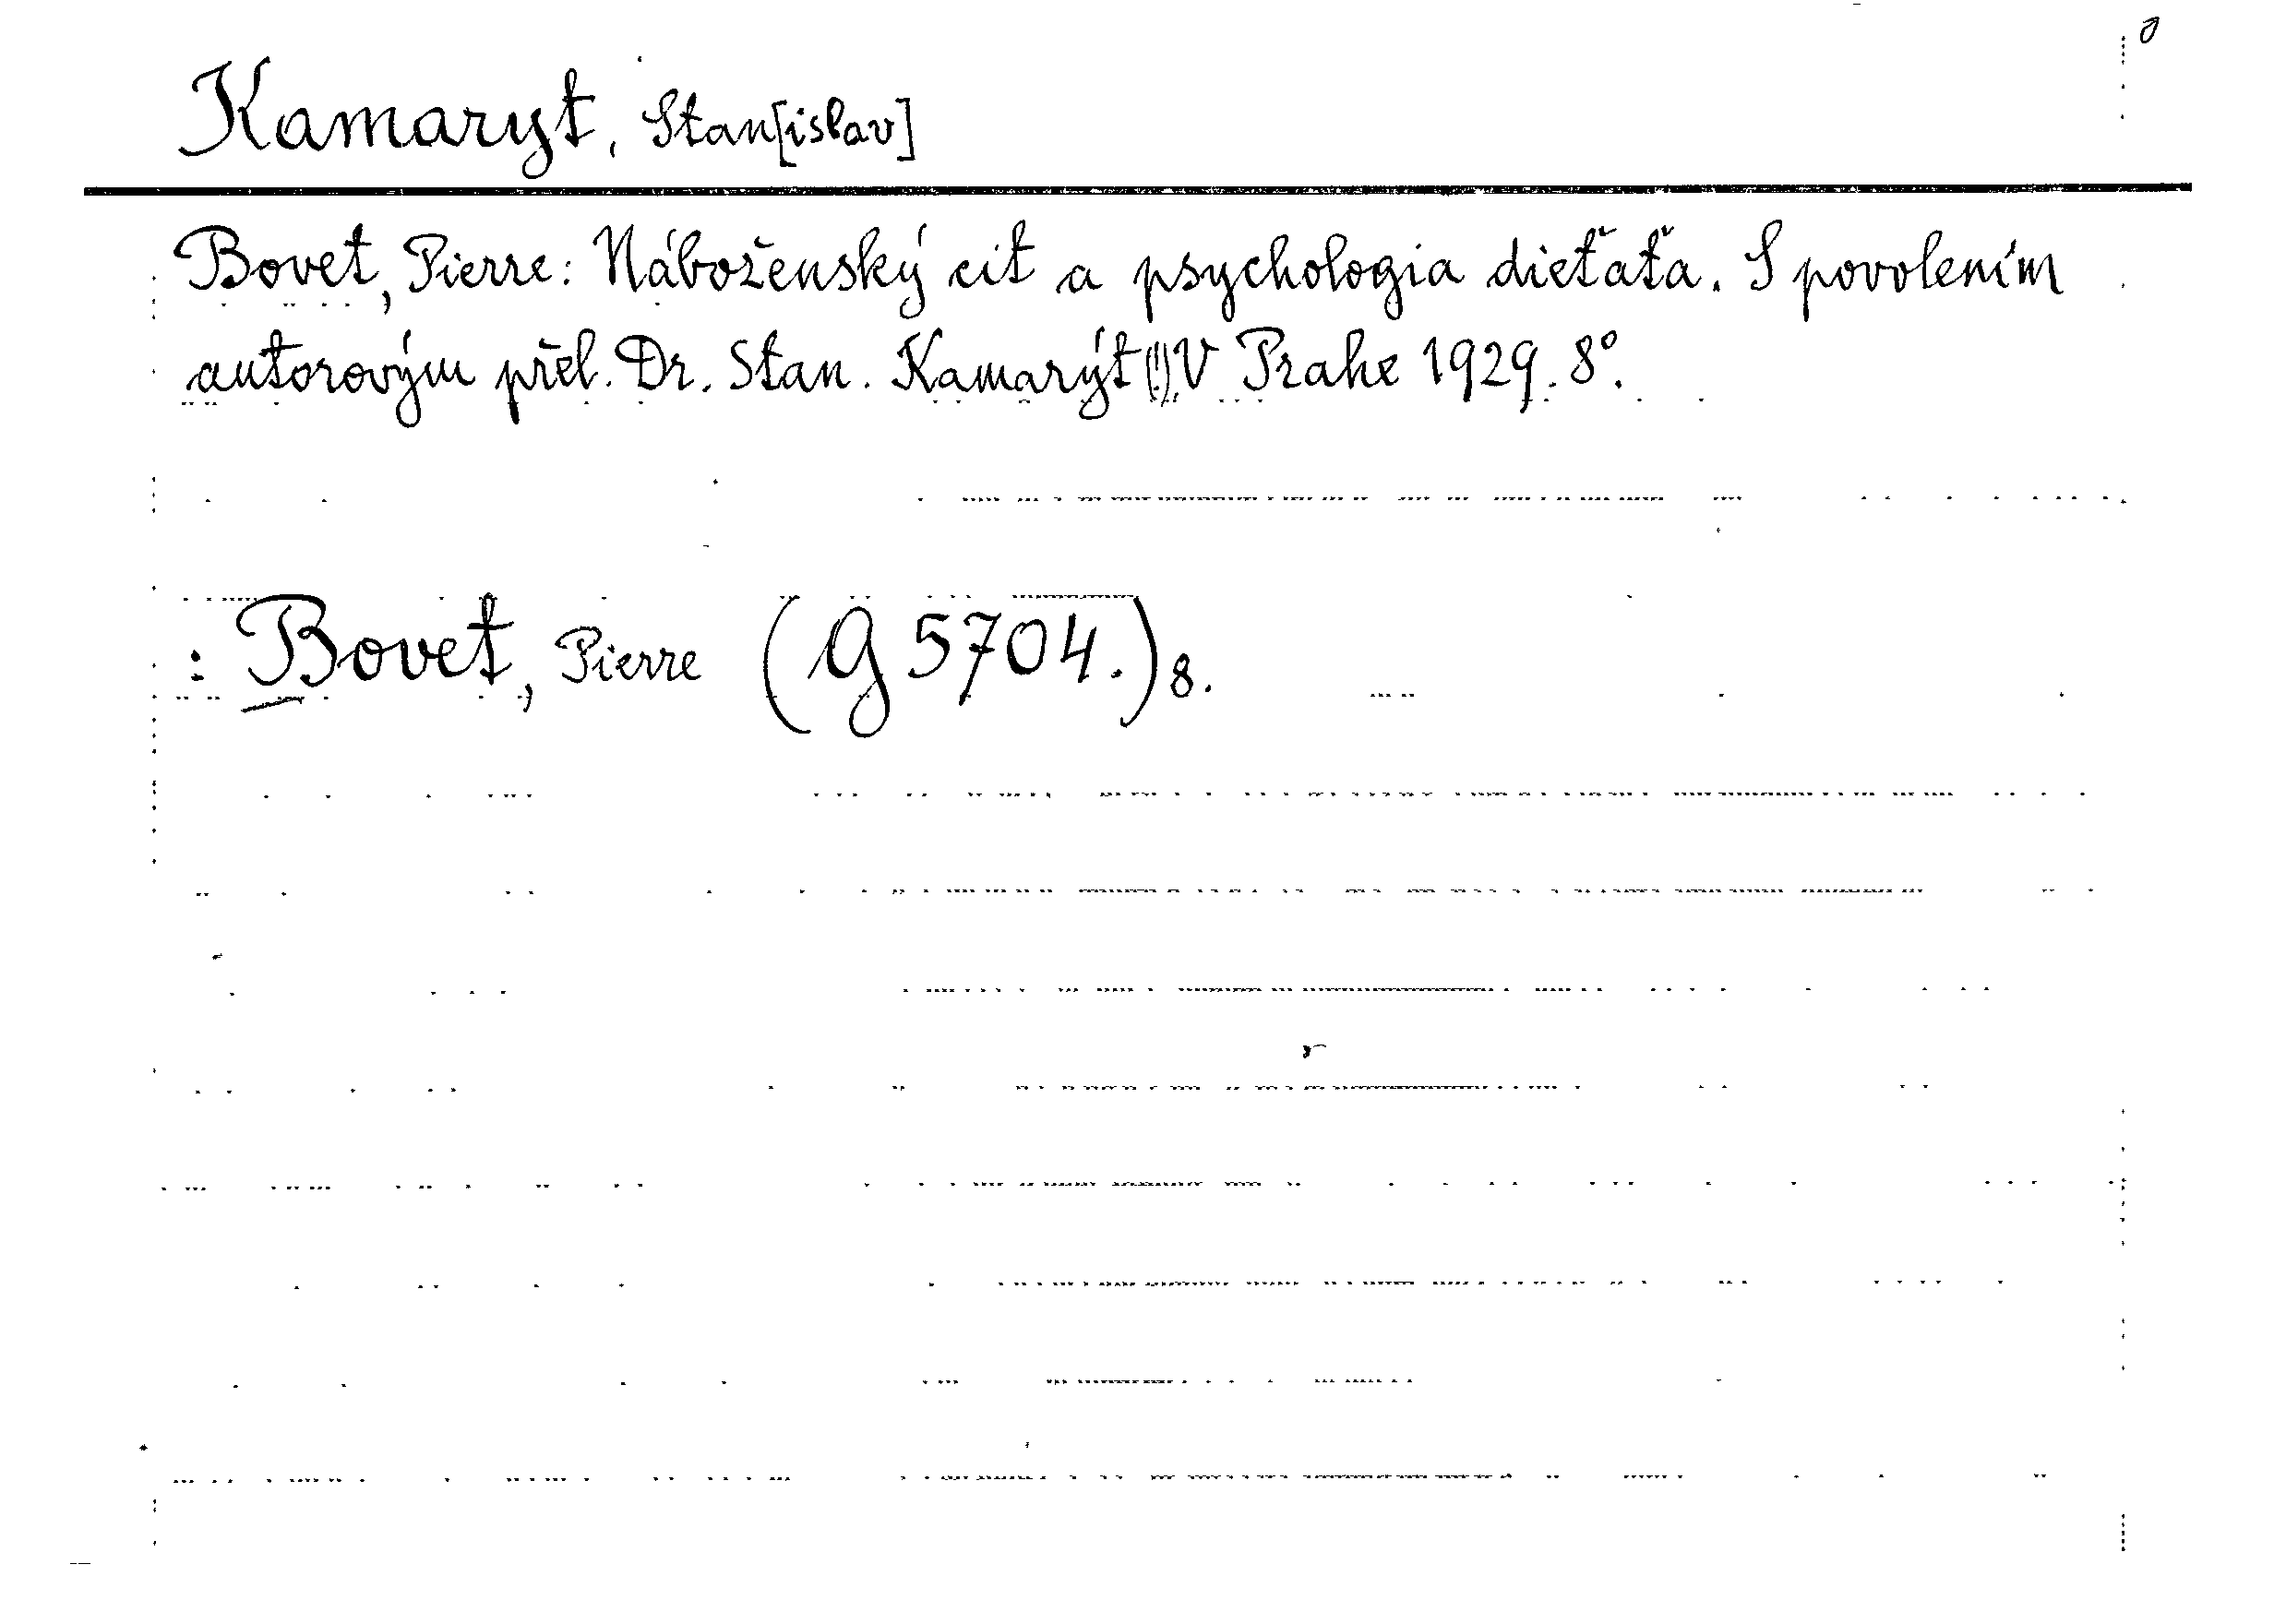 Kamaryt, Stan[islav]
Bovet, Pierre: Náboženský cit a psychologia dieťaťa. S povolením
autorovým přel. Dr. Stan. Kamarýt(!). V Prahe 1929. 8°.
: Bovet, Pierre (G 5704.) 8.